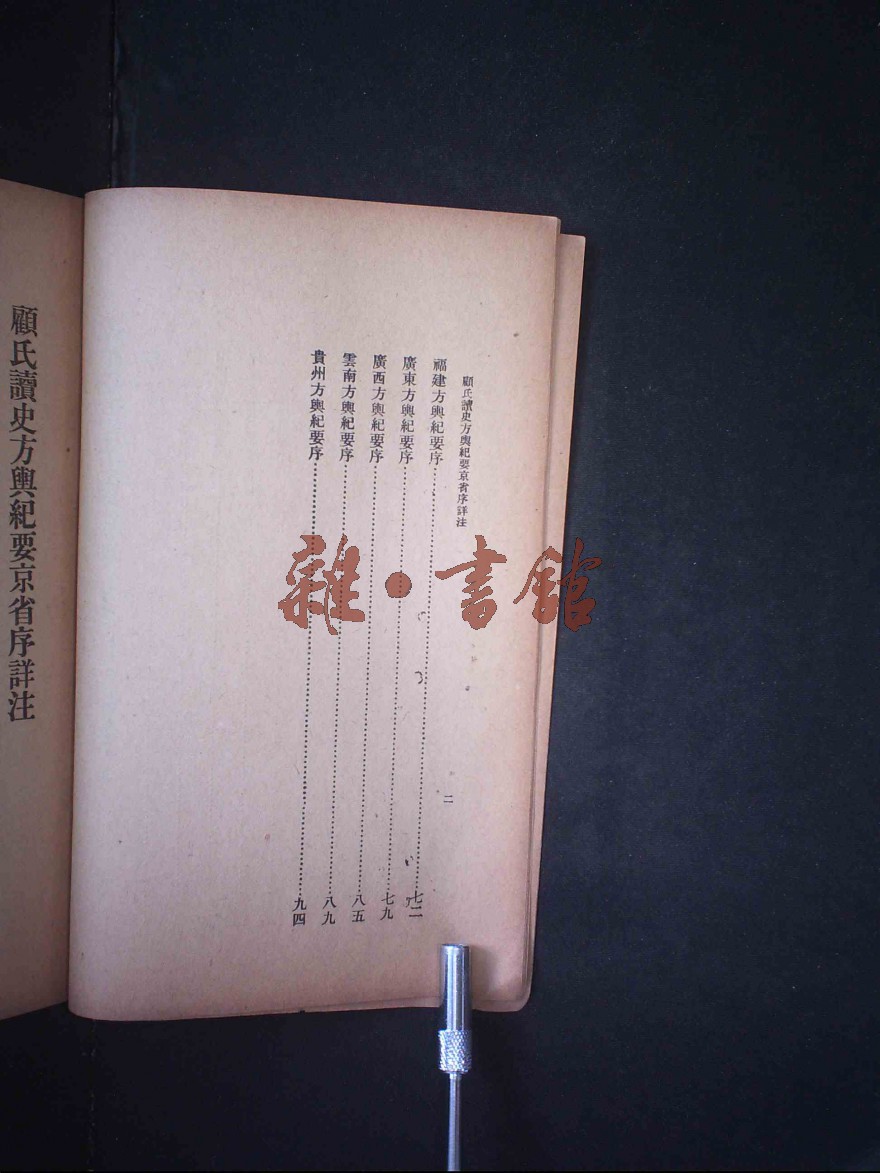 顧氏讀史方輿紀要京省序詳注
二
福建方輿紀要序……七二
廣東方輿紀要序……七九
廣西方輿紀要序……八五
雲南方輿紀要序……八九
貴州方輿紀要序……九四
顧氏讀史方輿紀要京省序詳注
雜·書館